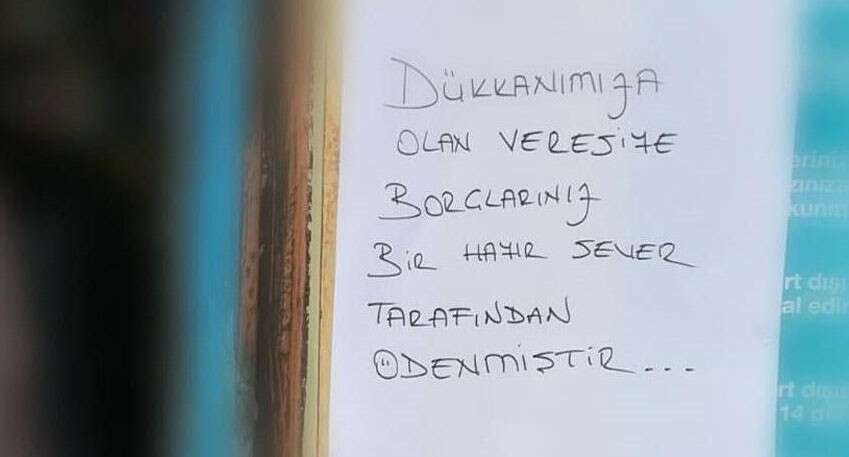 DÜKKANIMIZA
OLAN VERESİYE
BORÇLARINIZ
BİR HAYIR SEVER
TARAFINDAN
ÖDENMİŞTİR...
rt dışı
al edin
rt dışı
14 g